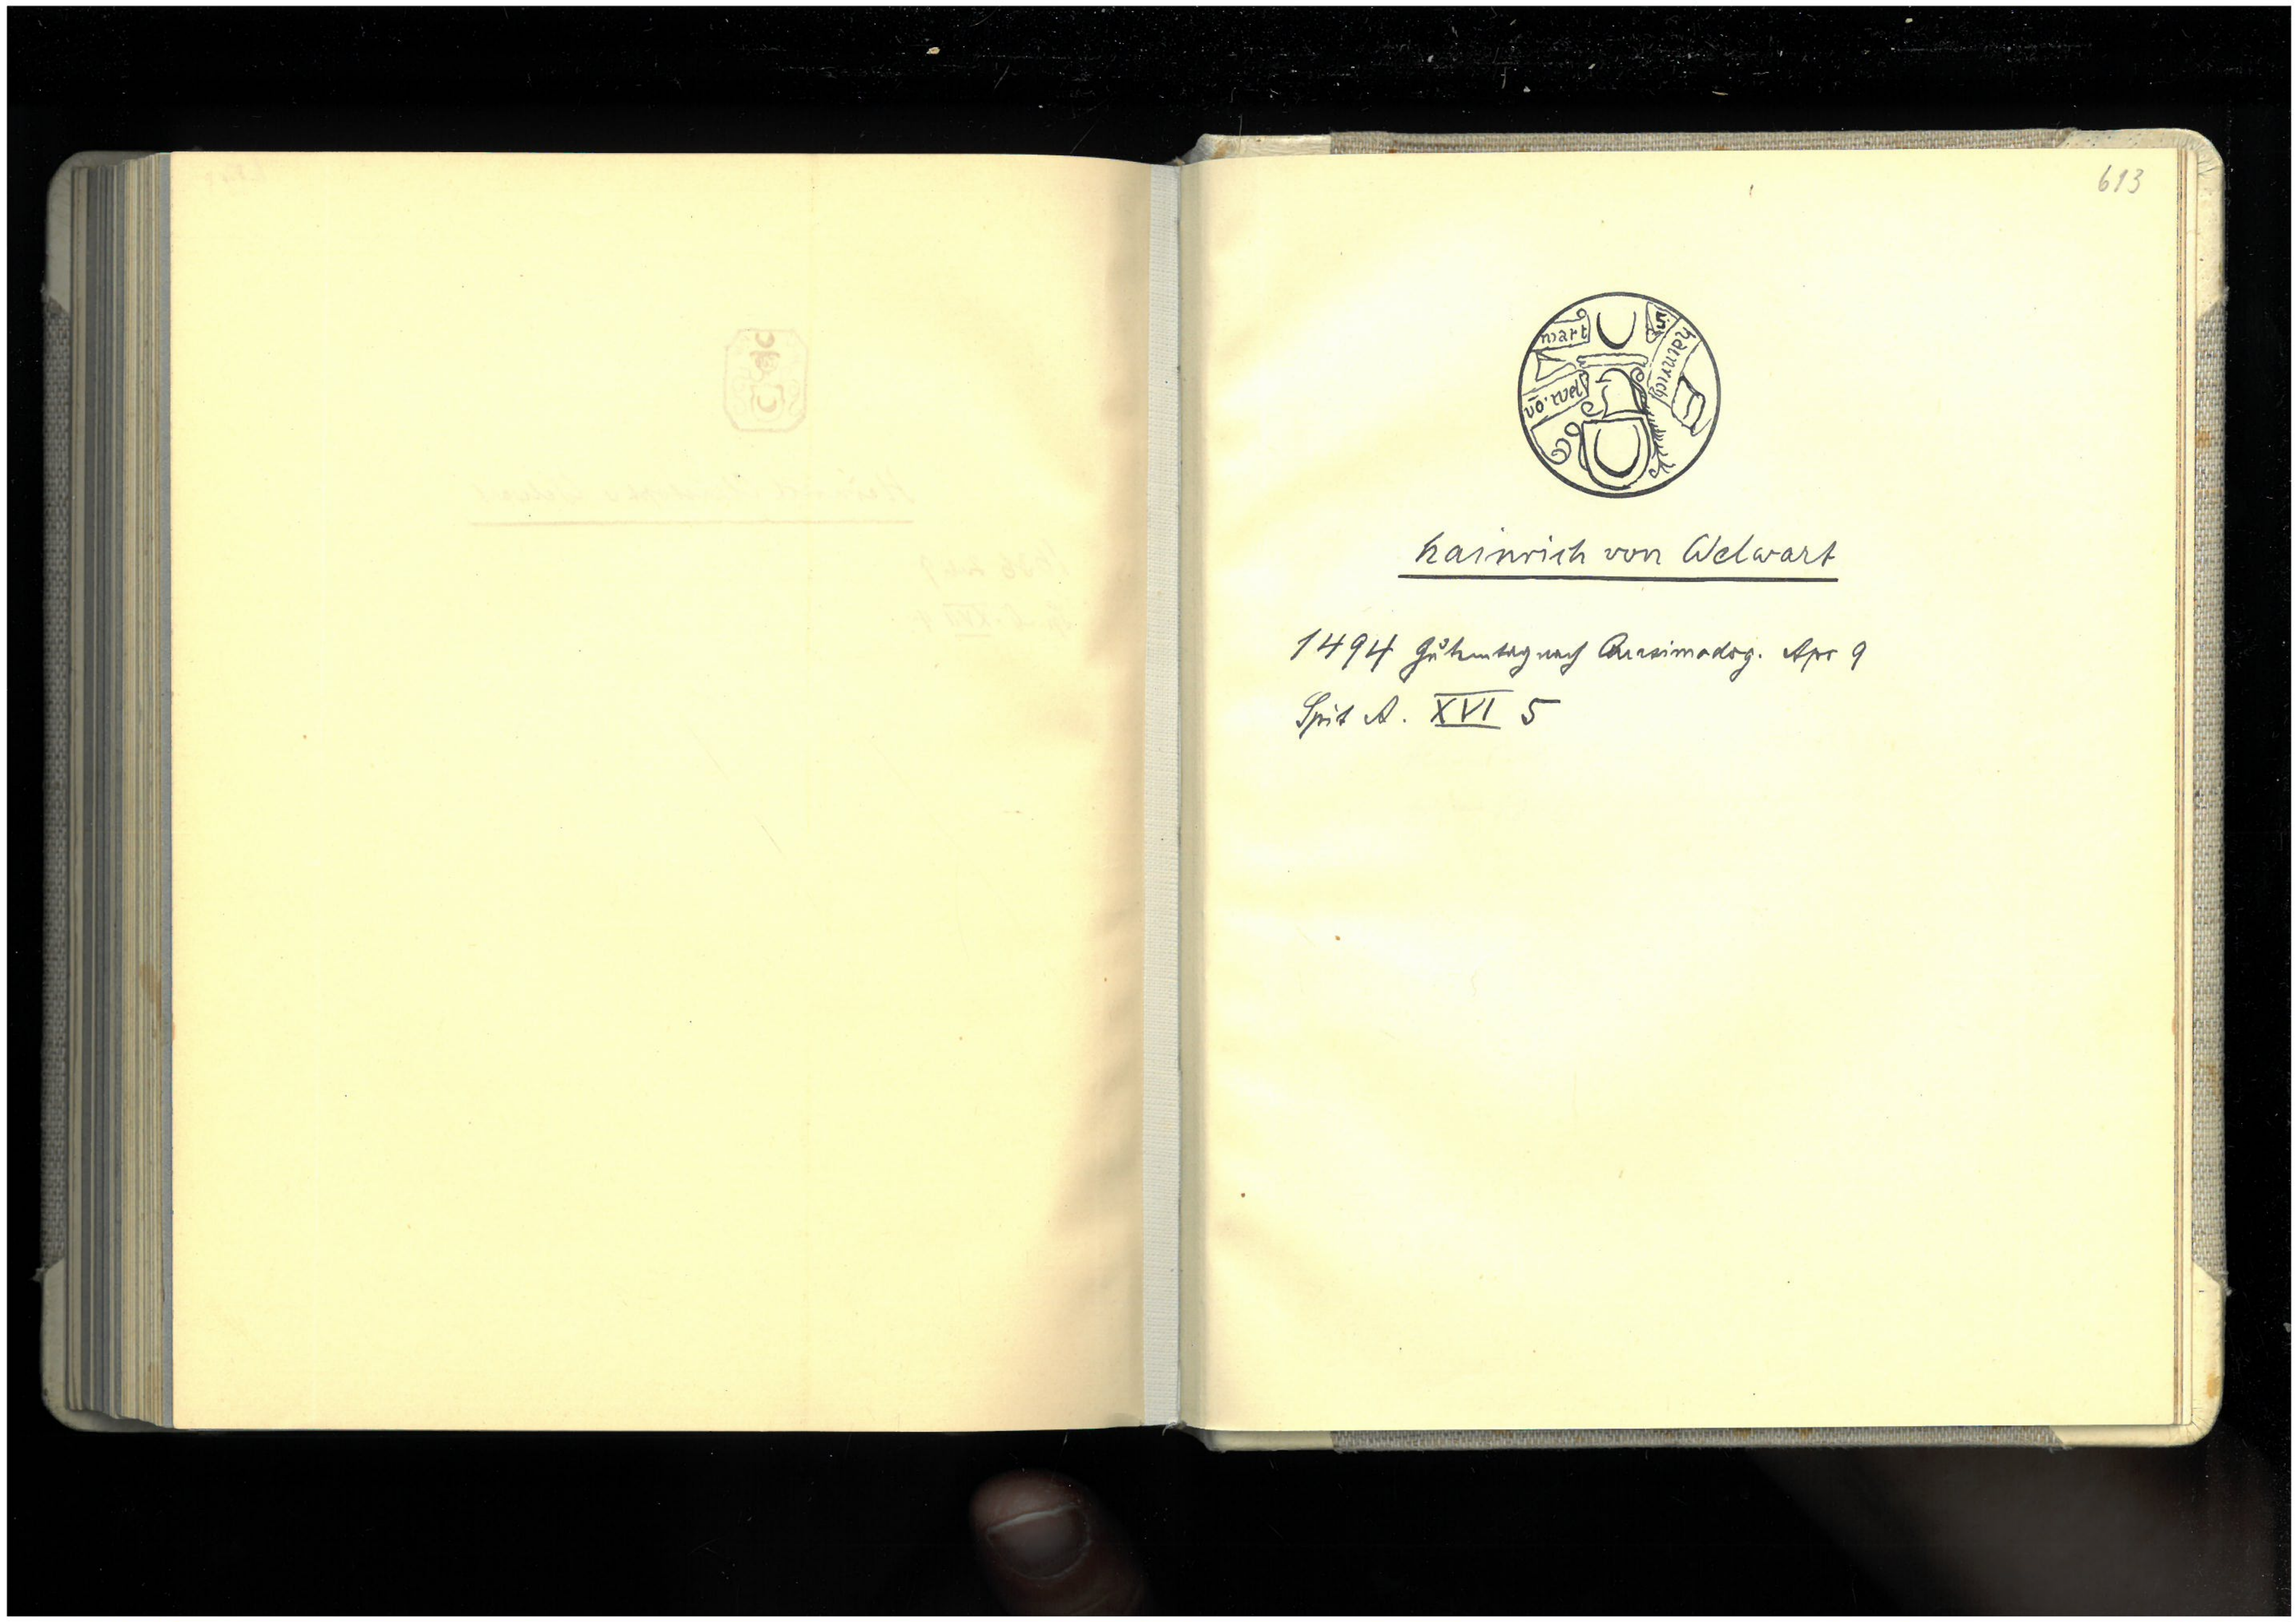 613
S. hainrich
vō. wel
wart
hainrich von Welwart
1494 Gůtemtag nach Quasimodog. Apr 9
Spit A. XVI 5